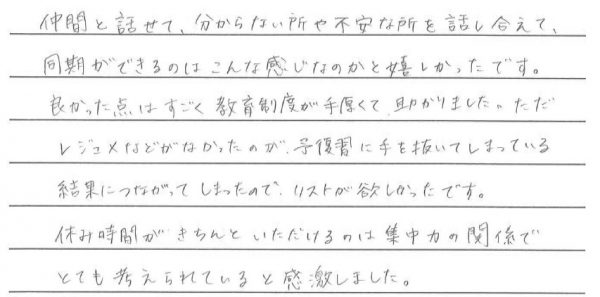 仲間と話せて、分からない所や不安な所を話し合えて、
同期ができるのはこんな感じなのかと嬉しかったです。
良かった点はすごく教育制度が手厚くて、助かりました。ただ
レジュメなどがなかったのが、予復習に手を抜いてしまっている
結果につながってしまったので、リストが欲しかったです。
休み時間がきちんといただけるのは集中力の関係で
とても考えられていると感激しました。